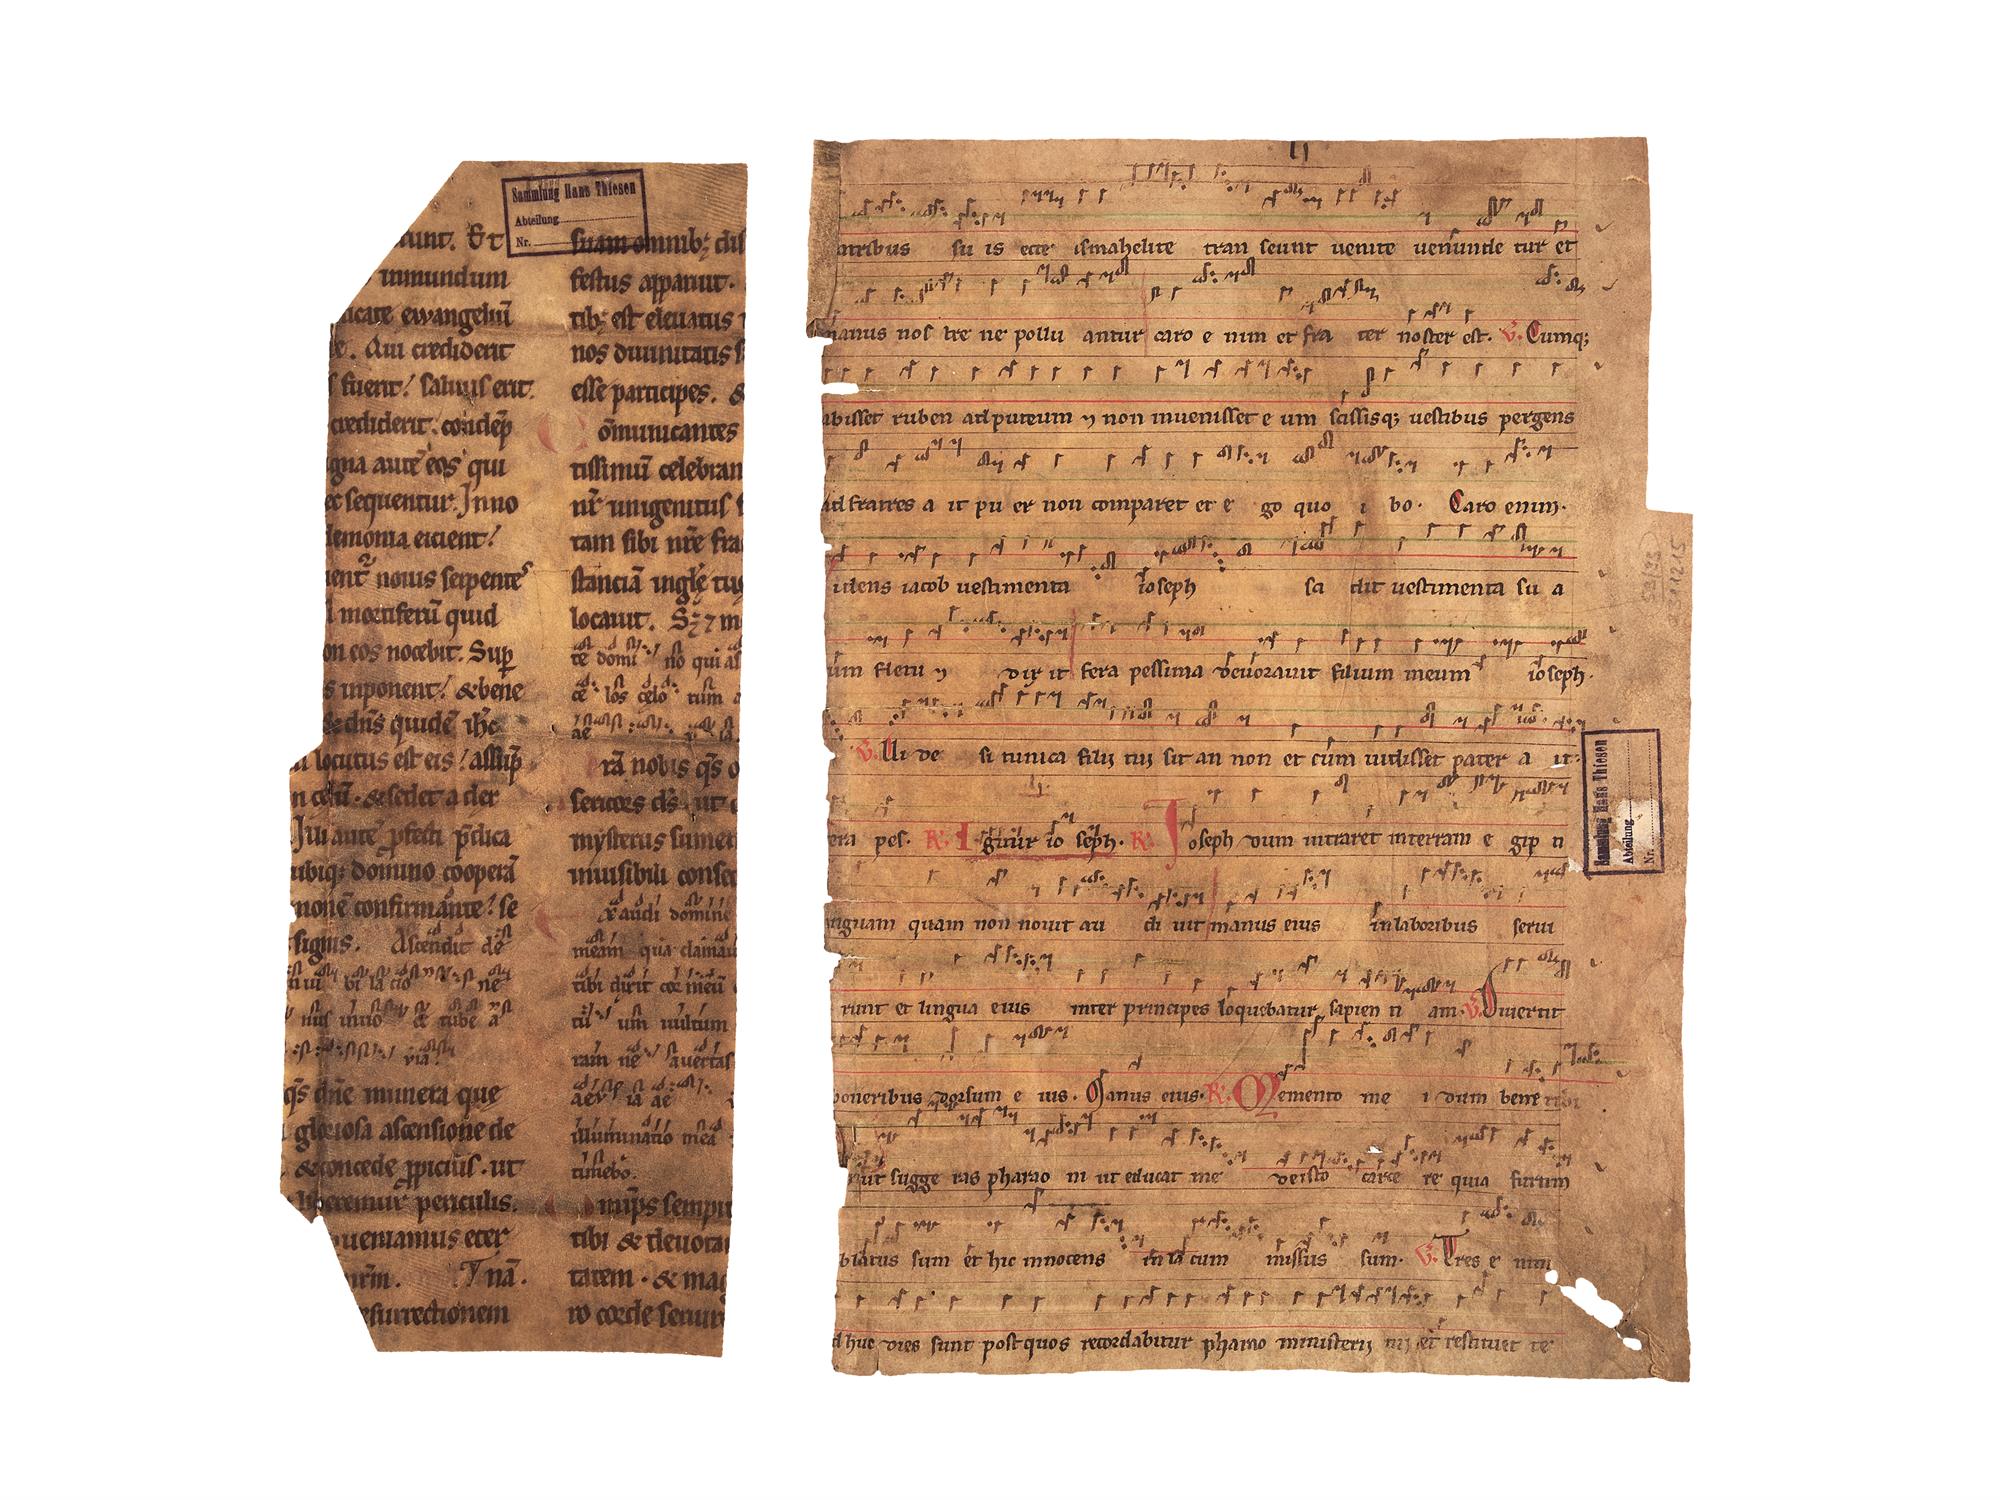 Sammlung Hans Thiesen
Abteilung
Nr.
cunt. Et
inmundum
icate ewangeliũ
e. Qui crediderit
fuerit! saluus erit.
crediderit. condẽp
gna autẽ eos qui
et sequentur. Inno
demonia eicient!
ient nouis serpentes
mortiferũ quid
on eos nocebit. Sup
s inponent! & bene
& dn̄s quidẽ ih̄c
locutus est eis! assũp
n celũ. & sedet a dex
Illi autẽ p̄fecti p̄dica
ubiq; domino cooperã
monẽ confirmante! se
signis. Ascendit de
bi la cio ne
nus in uo & tube a
uia
qs dn̄e munera que
gloriosa ascensione de
& concede ppicius. ut
liberemur periculis.
ueniamus eter
nr̄m. T nã.
esurrectionem
suam omnib; dis
festus apparuit.
tib; est eleuatus
nos diuinitatis s
esse participes. &
omunicantes
tissimũ celebran
nr̄ unigenitus
tam sibi nr̄e fra
stanciã in gl̄e tue
locauit. S; 7 m
te domi no qui as
ce los celo rum a
ae
rã nobis qs o
sericors ds. ut
mysteriis sumen
inuisibili conse
Exaudi domine
meam qua clamaui
tibi dixit cor meũ
tũ um uultum
ram ne auertas
aeu ia ae
illuminatio mea
timebo.
mips sempi
tibi & deuota
tatem. & mag
ro corde seruir
atribus su is ecce ismahelite tran seunt uenite uenunde tur et
manus nos tre ne pollu antur caro e nim et fra ter noster est. V. Cumq;
abisset ruben ad puteum 7 non inuenisset e um scissisq; uestibus pergens
ad fratres a it pu er non comparet et e go quo i bo. Caro enim.
uidens iacob uestimenta ioseph sci dit uestimenta su a
um fletu 7 dix it fera pessima deuorauit filium meum ioseph.
V. Ui de si tunica filii tui sit an non et cum uidisset pater a it.
era pes. R. Igitur io seph. R. Ioseph dum intraret in terram e gip ti
inguam quam non nouit au di uit manus eius in laboribus serui
runt et lingua eius inter principes loquebatur sapien ti am. V. Diuertit
oneribus dorsum e ius. Manus eius. R. Memento me i dum bene tibi
ut sugge ras pharao ni ut educat me de isto carce re quia furtim
blatus sum et hic innocens in la cum missus sum. V. Tres e nim
dhuc dies sunt post quos recordabitur pharao ministerii tui et restituet te
53/23
23125
Sammlung Hans Thiesen
Abteilung
Nr.